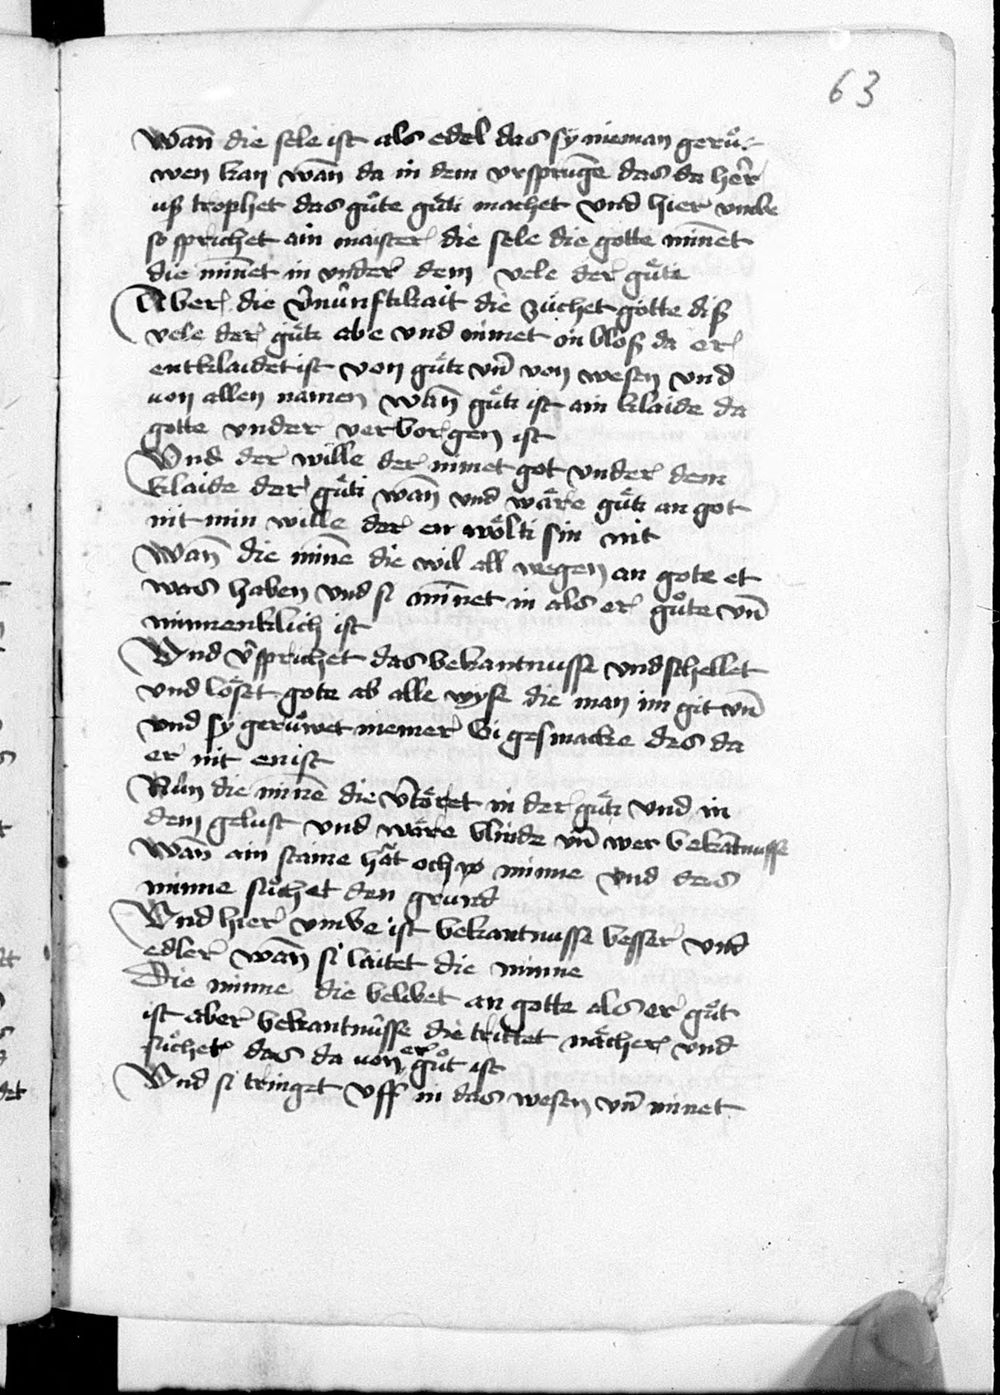 63
Wan̄ die sele ist als edel das sy nieman gerůͤ⸗
wen kan wan̄ da in dem vrsprunge das da her
uß trophet das gůte gůti machet vnd hier vmbe
so sprichet ain maister die sele die gotte minnet
die minnet in vnder dem vele der gůte
Aber die v̄nunftikait die zuchet gotte diß
vele der gůti abe vnd nimet in bloß da er
entklaidet ist von gůti vn̄ von wesen vnd
von allen namen wan̄ gůti ist ain klaide da
gotte vnder verborgen ist
Vnd der wille der nimet got vnder dem
klaide der gůti wan̄ vnd wåre gůti an got
nit min wille der en wölti sin nit
Wan̄ die minē die wil all wegen an gote et
was haben vnd si min̄et in als er gůte vn̄
minnenklich ist
Vnd v̄sprichet das bekantnusse vndschellet
vnd löset gote ab alle wyse die man im git vn̄
vnd sy gerůwet niemer bi gesmacke des da
er nit enist
Nun die minē die v̄töret in der gůti vnd in
dem gelust vnd wåre blinde vn̄ wer bekantnusse
Wan̄ ain staine håt och minne vnd des
minne sůchet den grund
Vnd hier vmbe ist bekantnusse besser vnd
edler wan̄ si laitet die minne
Die minne die belibet an gotte als er gůt
ist aber bekantnusse die trittet nåcher vnd
sůchet das da von er gůt ist
Vnd si tringet vff in das wesen vn̄ nimet